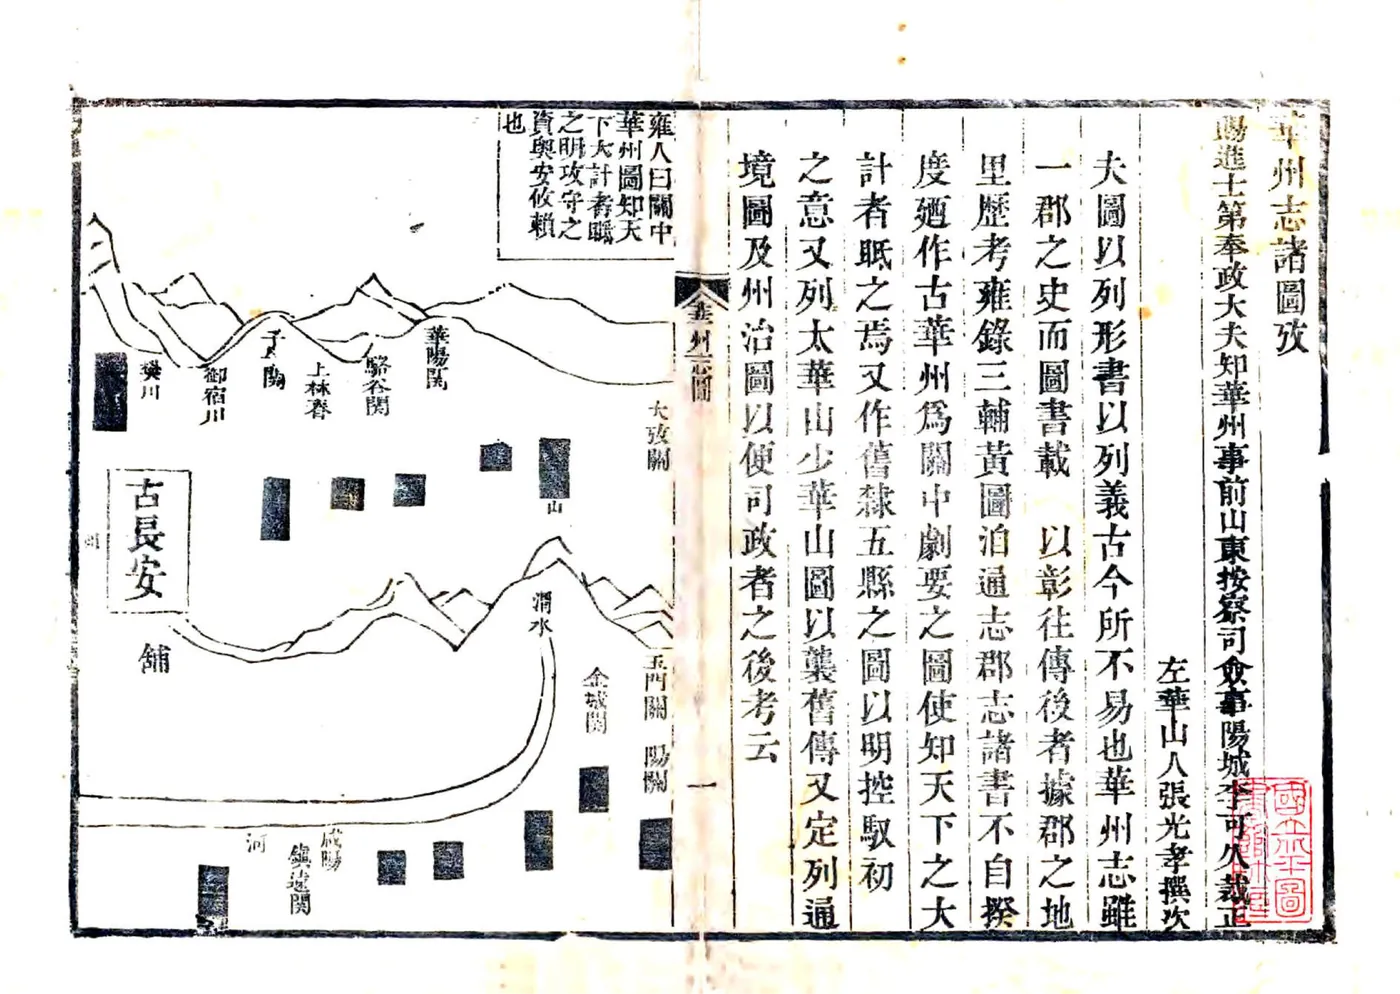 華州志諸圖攷
賜進士第奉政大夫知華州事前山東按察司僉事陽城李可久裁正
左華山人張光孝撰次
夫圖以列形書以列義古今所不易也華州志雖
一郡之史而圖書載 以彰往傳後者據郡之地
里歷考雍錄三輔黃圖洎通志郡志諸書不自揆
度廼作古華州爲關中劇要之圖使知天下之大
計者眂之焉又作舊隸五縣之圖以明控馭初
之意又列太華山少華山圖以襲舊傳又定列通
境圖及州治圖以便司政者之後考云
華州志圖
一
雍人曰關中
華州圖知天
下大計者眂
之明攻守之
資與安攸賴
也
大散關
華陽關
駱谷関
上林春
子午關
御宿川
樊川
山
古長安
州
舖
渭水
玉門關
陽關
金城関
咸陽
鎮遠関
河